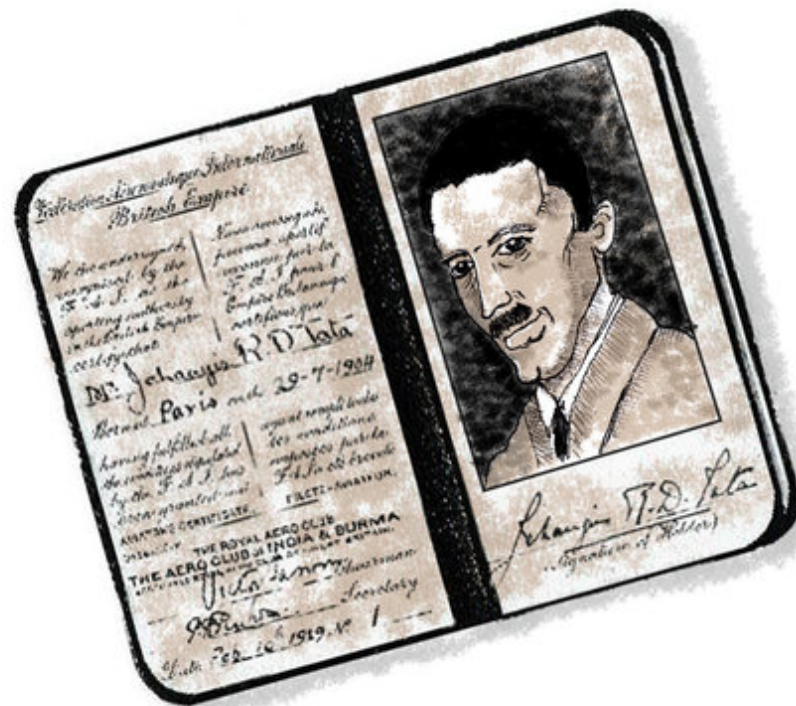 Fédération Aéronautique Internationale
British Empire
We the undersigned
recognised by the
F. A. I. as the
sporting authority
in the British Empire
certify that
Nous soussignés
pouvoir sportif
reconnu par la
F. A. I. pour l'
Empire Britannique
certifions que
Mr. Jehangir R. D. Tata
Born at Paris on the 29-7-1904
having fulfilled all
the conditions stipulated
by the F. A. I. has
been granted an
AVIATOR'S CERTIFICATE
ayant rempli toutes
les conditions
imposées par la
F. A. I. a été breveté
PILOTE-AVIATEUR.
THE ROYAL AERO CLUB
THE AERO CLUB OF INDIA & BURMA
Chairman
Secretary
Date Feb. 10th 1929. No 1
Jehangir R. D. Tata
(Signature of Holder)